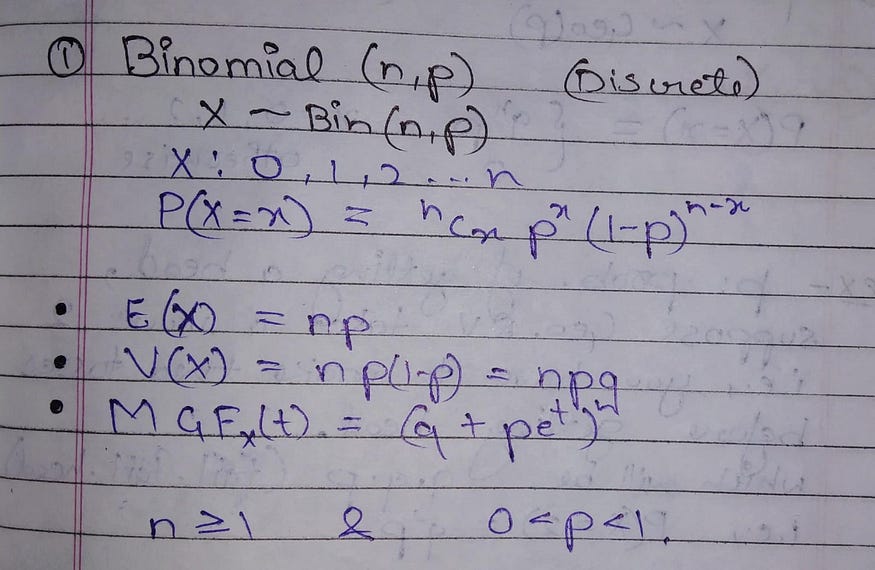 ① Binomial (n,p) (Discrete)
X ~ Bin(n,p)
X : 0, 1, 2 ... n
P(X=x) = ⁿCₓ pˣ (1-p)ⁿ⁻ˣ
• E(X) = np
• V(X) = np(1-p) = npq
• MGFₓ(t) = (q + peᵗ)ⁿ
n ≥ 1 & 0 < p < 1.